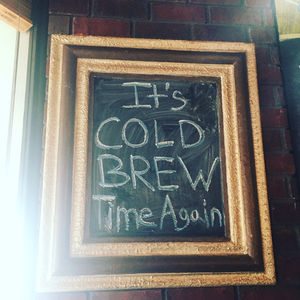 It's
COLD
BREW
Time Again